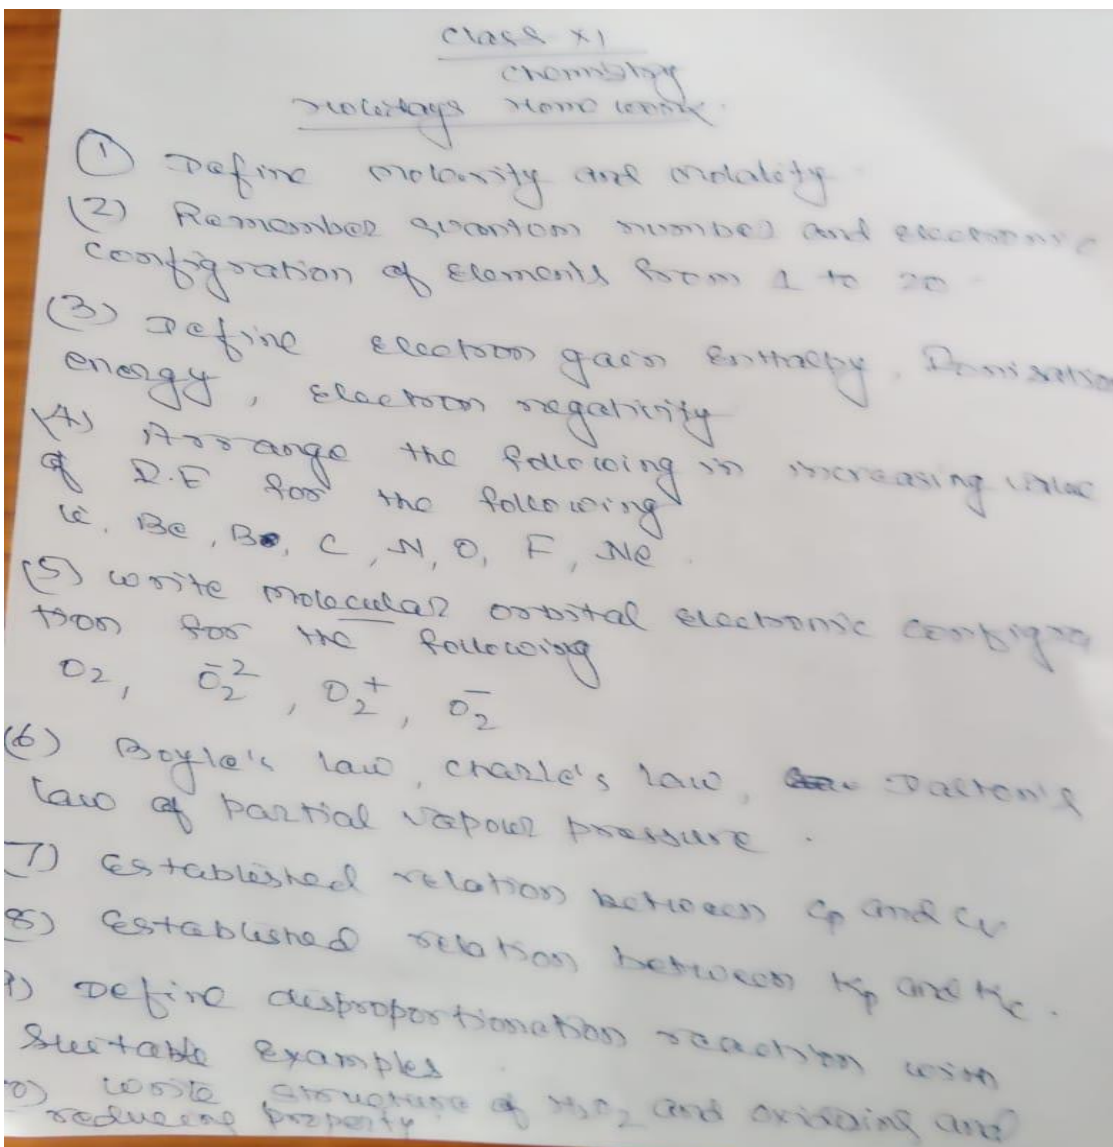 Class XI
Chemistry
Holidays Home work.
(1) Define molarity and molality
(2) Remember quantom number and electronic
Configration of Elements from 1 to 20
(3) Define electron gain Enthalpy, Ionisation
energy, electron negativity
(4) Arrange the following in increasing value
of I.E for the following
Li, Be, B, C, N, O, F, Ne.
(5) write molecular orbital electronic configra
tion for the following
O2, O2^-2, O2^+, O2^-
(6) Boyle's law, Charle's law, Dalton's
law of partial vapour pressure.
7) Established relation between Cp and Cv
8) Established relation between Kp and Kc.
9) Define disproportionation reaction with
Suitable Examples.
0) write structure of H2O2 and oxidising and
reducing property.